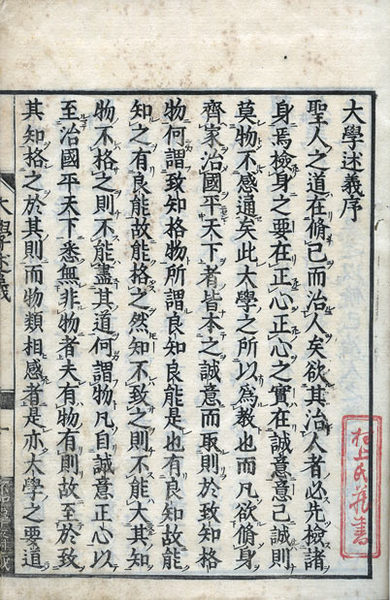 大學述義序
聖人之道在脩己而治人矣欲其治人者必先檢諸
身焉檢身之要在正心正心之實在誠意意己誠則
莫物不感通矣此大學之所以爲教也而凡欲脩身
齊家治國平天下者皆本之誠意而取則於致知格
物何謂致知格物所謂良知良能是也有良知故能
知之有良能故能格之然知不致之則不能大其知
物不格之則不能盡其道何謂物凡自誠意正心以
至治國平天下悉無非物者夫有物有則故至於致
其知格之於其則而物類相感者是亦大學之要道
村上氏藏書
大學述義